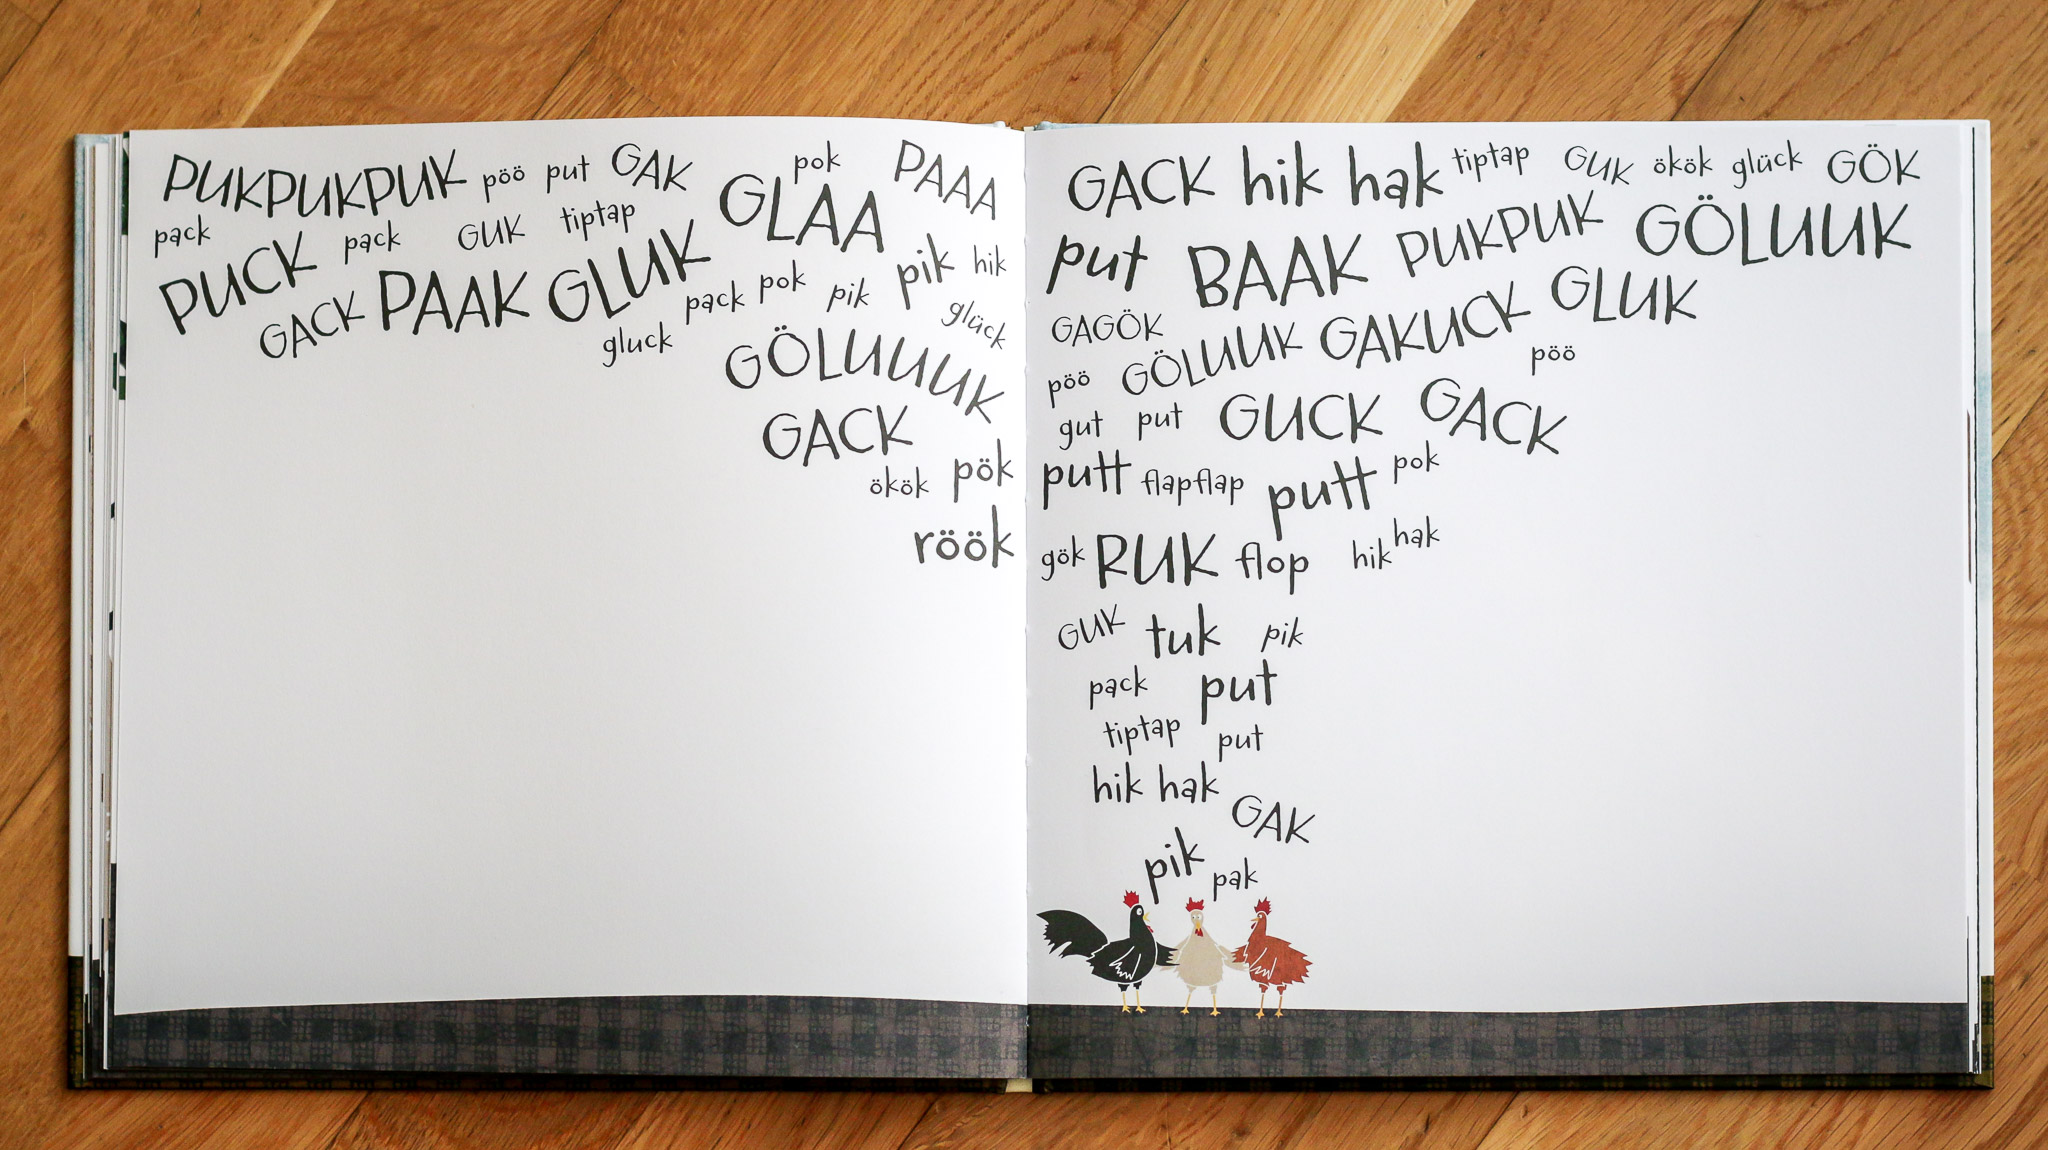 PUKPUKPUK pöö put GAK pok PAAA
pack PUCK pack GUK tiptap GLAA
GACK PAAK GLUK pack pok pik pik hik
gluck GÖLUUUK glück
GACK
ökök pök
röök
GACK hik hak tiptap GUK ökök glück GÖK
put BAAK PUKPUK GÖLUUK
GAGÖK GÖLUUK GAKUCK GLUK
pöö pöö
gut put GUCK GACK
putt flapflap putt pok
gök RUK flop hik hak
GUK tuk pik
pack put
tiptap put
hik hak GAK
pik pak